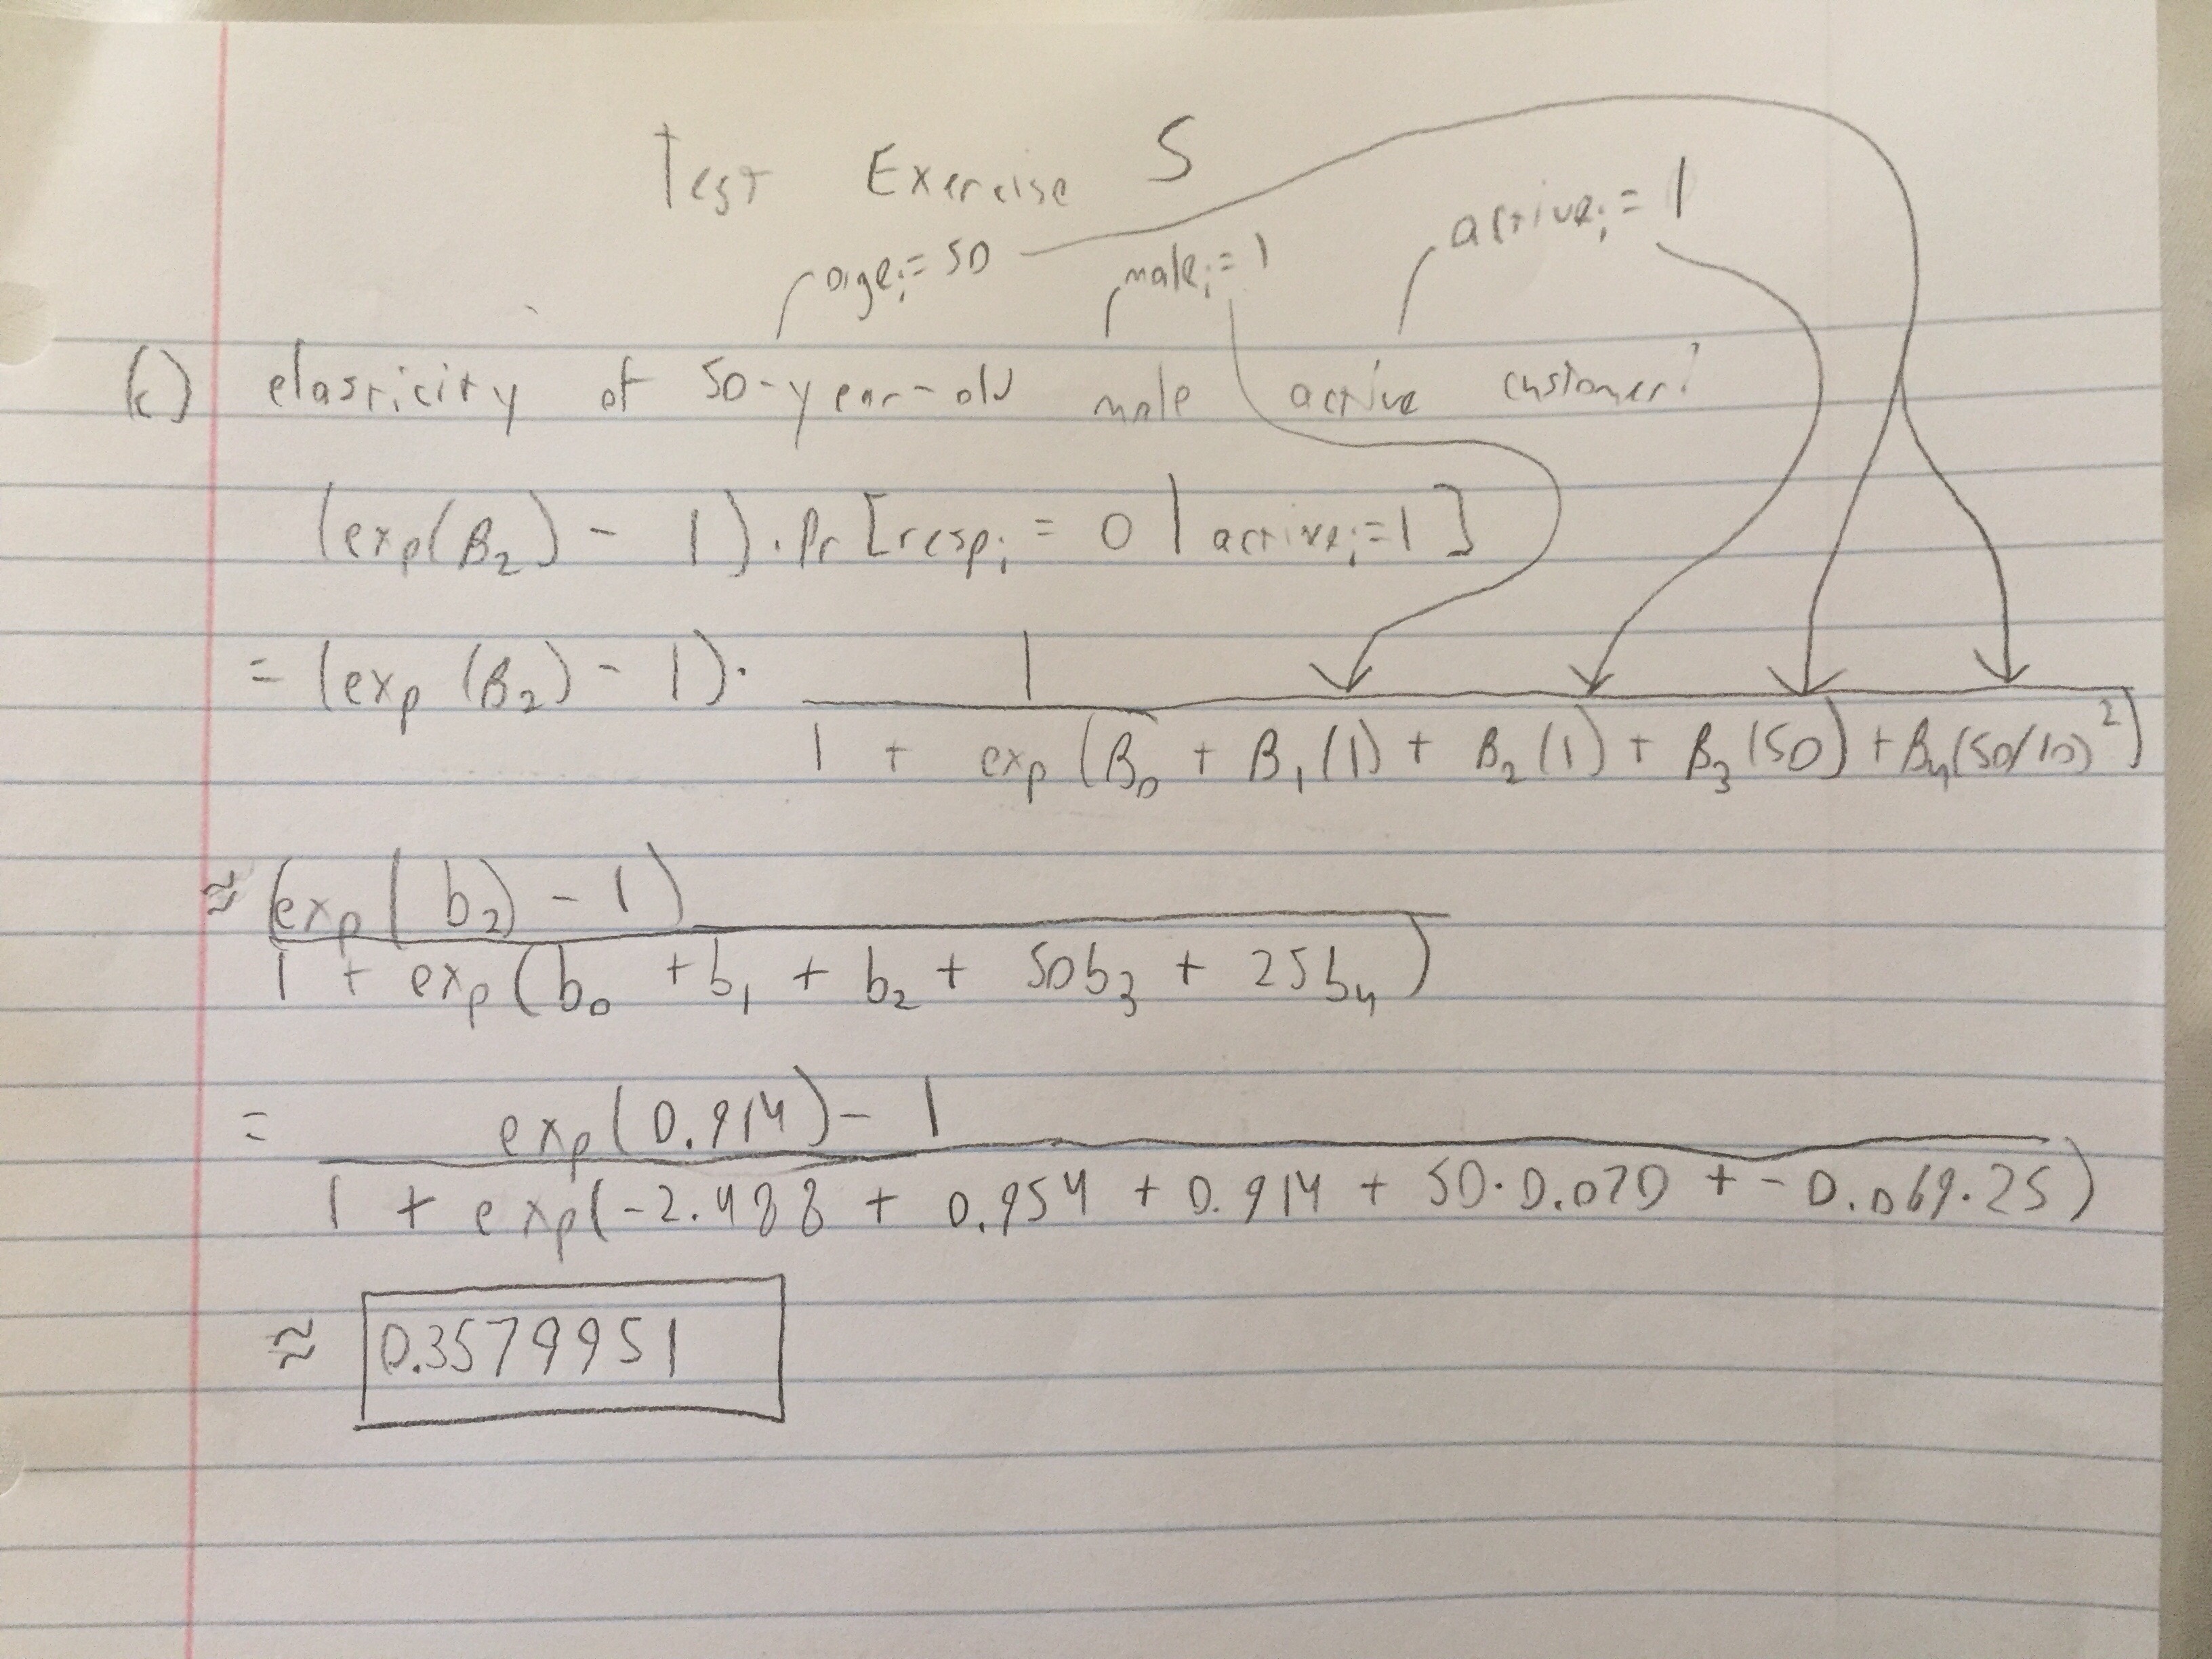 Test Exercise 5
age_i = 50 male_i = 1 active_i = 1
(c) elasticity of 50-year-old male active customer?
(exp(β_2) - 1) · Pr[resp_i = 0 | active_i = 1]
= (exp(β_2) - 1) · 1
1 + exp(β_0 + β_1(1) + β_2(1) + β_3(50) + β_4(50/10)^2)
≈ (exp(b_2) - 1)
1 + exp(b_0 + b_1 + b_2 + 50b_3 + 25b_4)
= exp(0.914) - 1
1 + exp(-2.488 + 0.954 + 0.914 + 50·0.070 + -0.069·25)
≈ 0.3579951